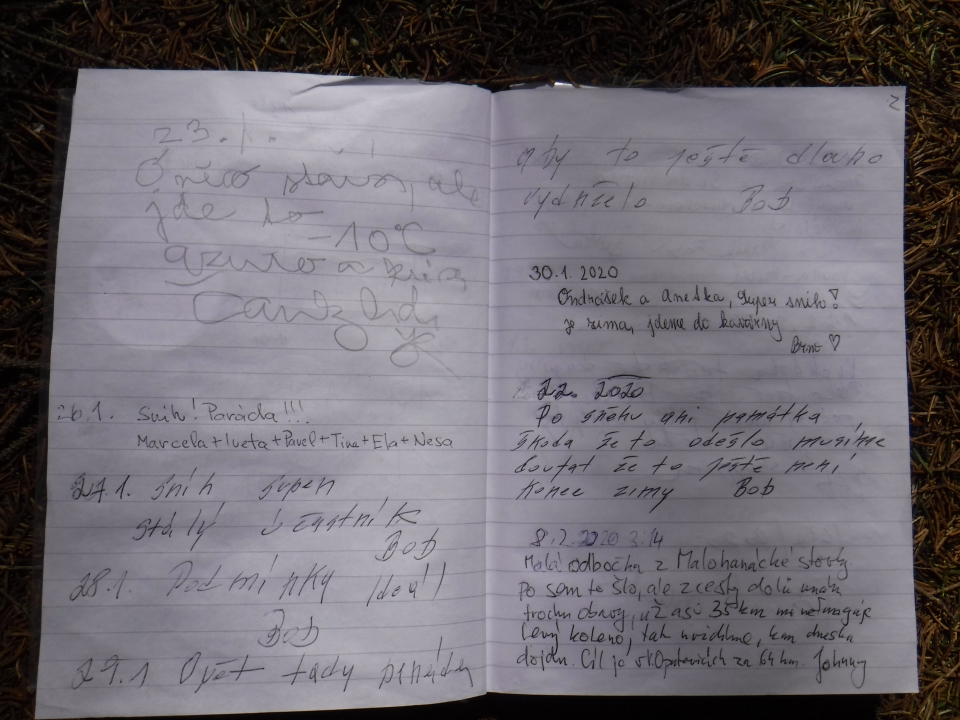 23.1.
O něco
jde to
-10°C
azuro a
26.1. Sníh! Paráda!!!
Marcela+Iveta+Pavel+Tina+Ela+Nesa
27.1. Sníh super
stálý účastník
Bob
28.1. Podmínky
Bob
29.1 Opět tady
2
aby to ještě dlouho
vydrželo Bob
30.1. 2020
Ondrášek a Aneska, super sníh!
je zima, jdeme do kavárny
Brno ♡
2.2. 2020
Po sněhu ani památka
škoda že to odešlo musíme
doufat že to ještě není
konec zimy Bob
8.2.2020 3:14
Malá odbočka z Malohanácké stovky.
Po sem to šlo, ale z cesty dolů mám
trochu obavy, už asi 35 km mi nefunguje
levý koleno, tak uvidíme, kam dneska
dojdu. Cíl je v Opatovicích za 64 km. Johnny